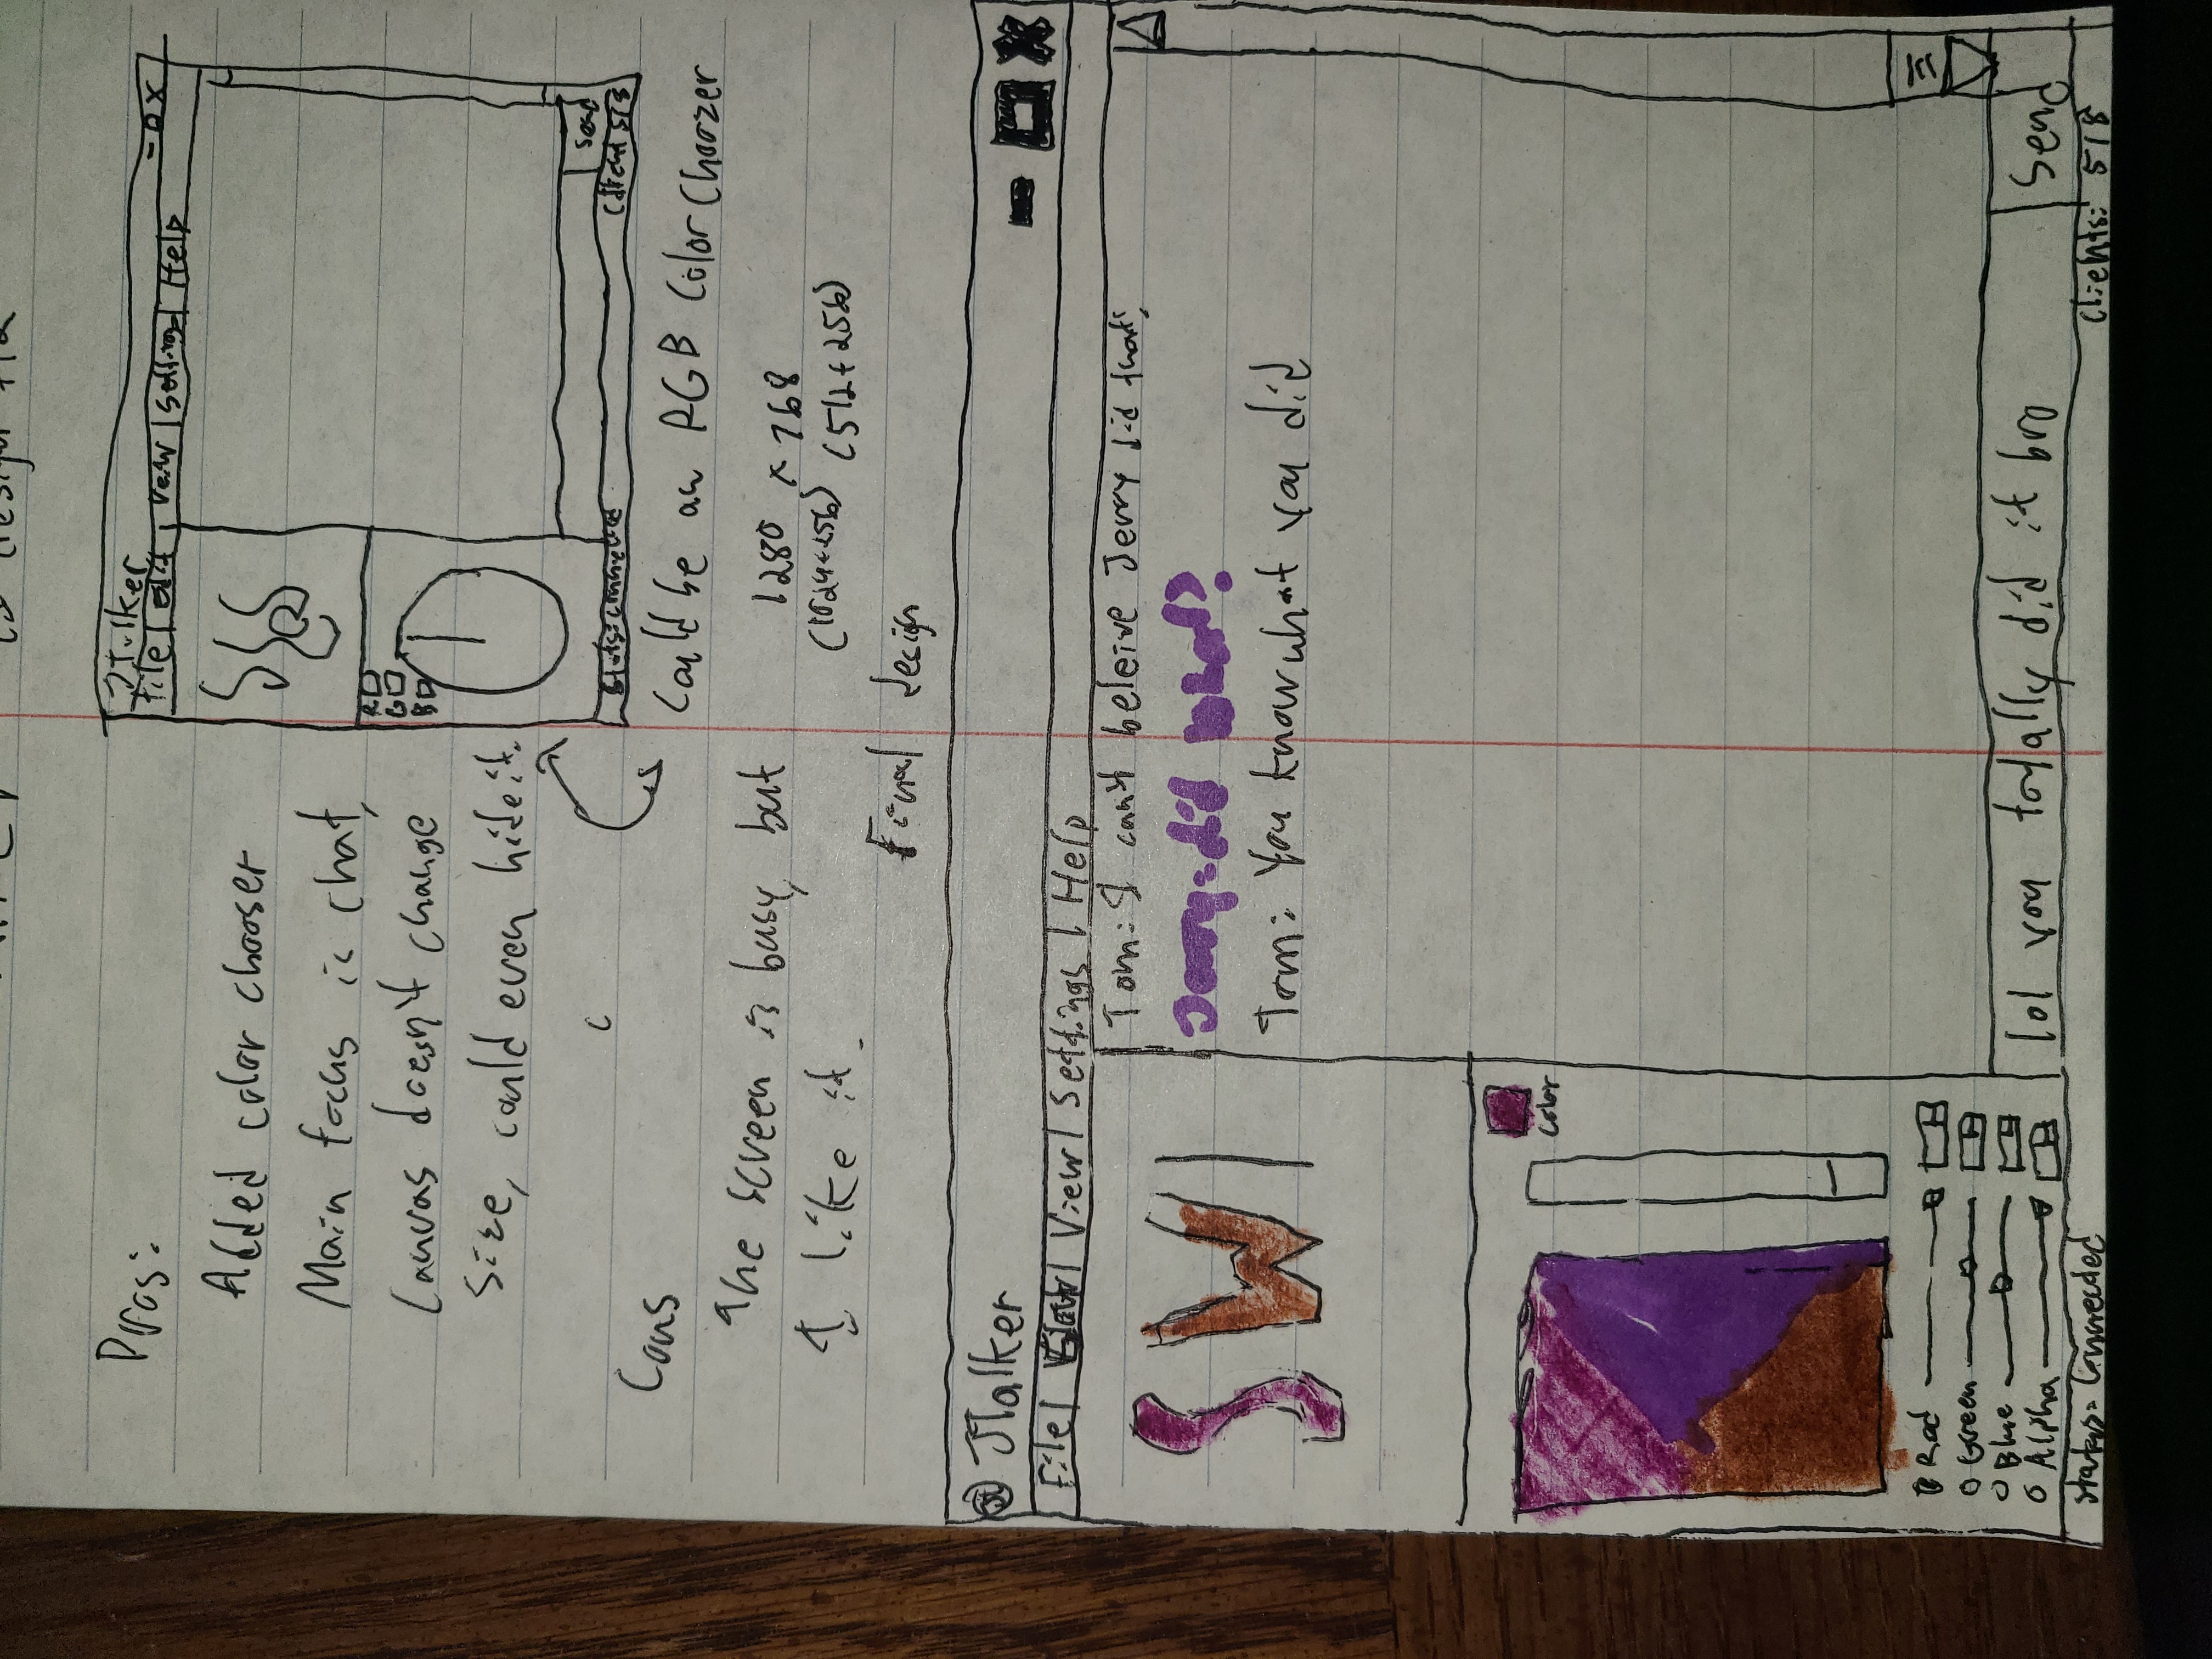 is design
Pros:
Added color chooser
Main focus is chat,
Canvas doesn't change
size, could even hide it.
JTalker
- o x
File | edit | View | Settings | Help
R
G
B
Send
Status: connected
5/8
Cons
The screen is busy, but
I like it.
Could be an RGB Color Choozer
1280 x 768
(1024+256) (512+256)
Final design
JTalker
File | | View | Settings | Help
SWI
Tom: I can't beleive Jerry did that!
Jerry: did what?
Tom: You know what you did
Color
Red
Green
Blue
Alpha
lol you totally did it bro
Send
Status: Connected
Clients: 5/8